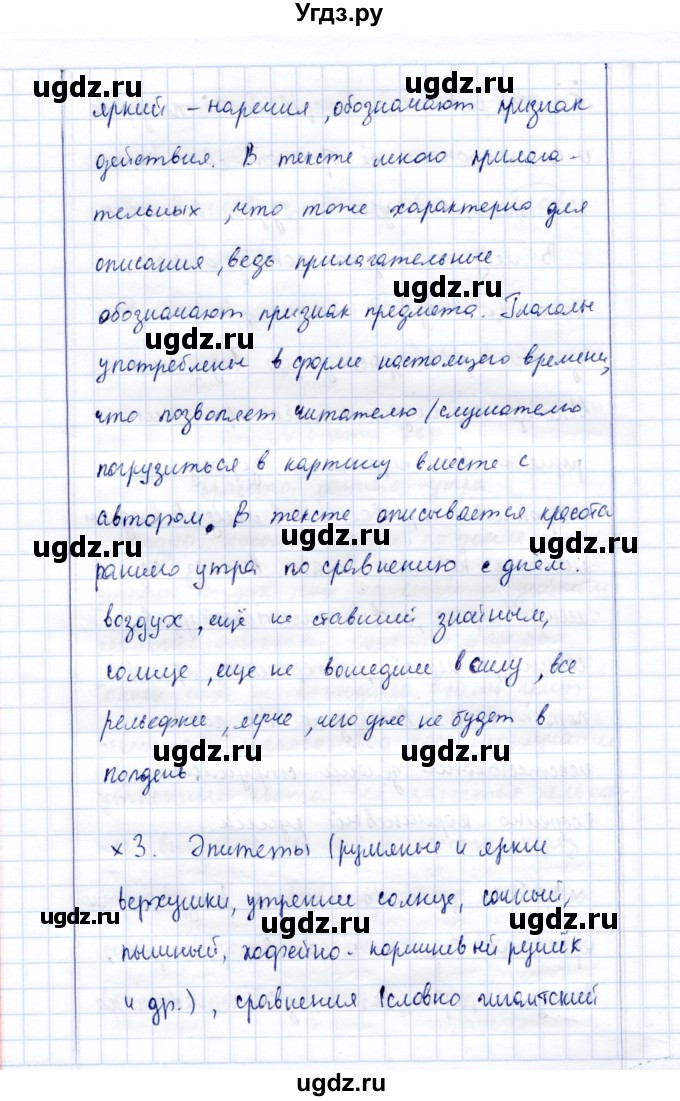 Угдз.ру
ugdz.ru ugdz.ru ugdz.ru
яркий – наречия, обозначают признак
действия. В тексте много прилага-
тельных, что тоже характерно для
описания, ведь прилагательные
ugdz.ru
обозначают признак предмета. Глаголы
ugdz.ru
употреблены в форме настоящего времени,
что позволяет читателю/слушателю
погрузиться в картину вместе с
автором. В тексте описывается красота
ugdz.ru ugdz.ru ugdz.ru
раннего утра по сравнению с днём:
воздух, ещё не ставший знойным,
солнце, еще не вошедшее в силу, все
рельефнее, ярче, чего уже не будет в
ugdz.ru ugdz.ru
полдень.
х 3. Эпитеты (румяные и яркие
верхушки, утреннее солнце, сочный,
ugdz.ru ugdz.ru ugdz.ru
пышный, кофейно-коричневый ручеёк
и др.), сравнения (словно гигантский
ugdz.ru